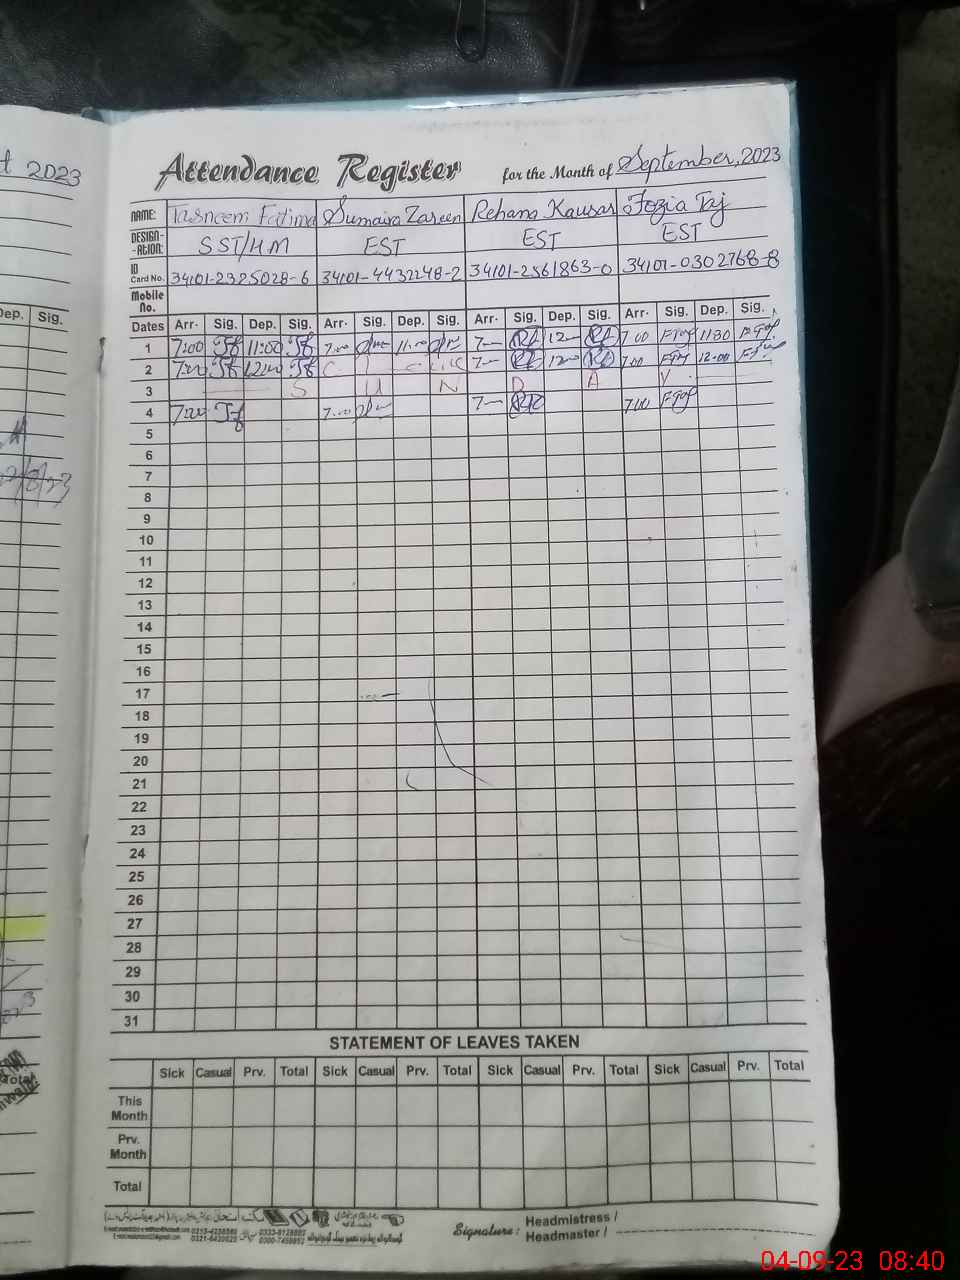 2023
Attendance Register for the Month of September, 2023
NAME: Tasneem Fatima Sumaira Zareen Rehana Kausar Fozia Taj
DESIGN-ATION: SST/HM EST EST EST
ID Card No. 34101-2325028-6 34101-4432248-2 34101-2561863-0 34101-0302768-8
Mobile No.
Dep. Sig.
Dates Arr. Sig. Dep. Sig. Arr. Sig. Dep. Sig. Arr. Sig. Dep. Sig. Arr. Sig. Dep. Sig.
1 7:00 11:00 7:00 11:00 7— 12— 7 00 1130
2 7:00 12:00 7— 12— 7:00 12:00
3 S U N D A Y
4 7:00 7:00 7— 7:00
5
6
7
8
9
10
11
12
13
14
15
16
17
18
19
20
21
22
23
24
25
26
27
28
29
30
31
STATEMENT OF LEAVES TAKEN
Sick Casual Prv. Total Sick Casual Prv. Total Sick Casual Prv. Total Sick Casual Prv. Total
This Month
Prv. Month
Total
Signature: Headmistress / Headmaster /
04-09-23 08:40